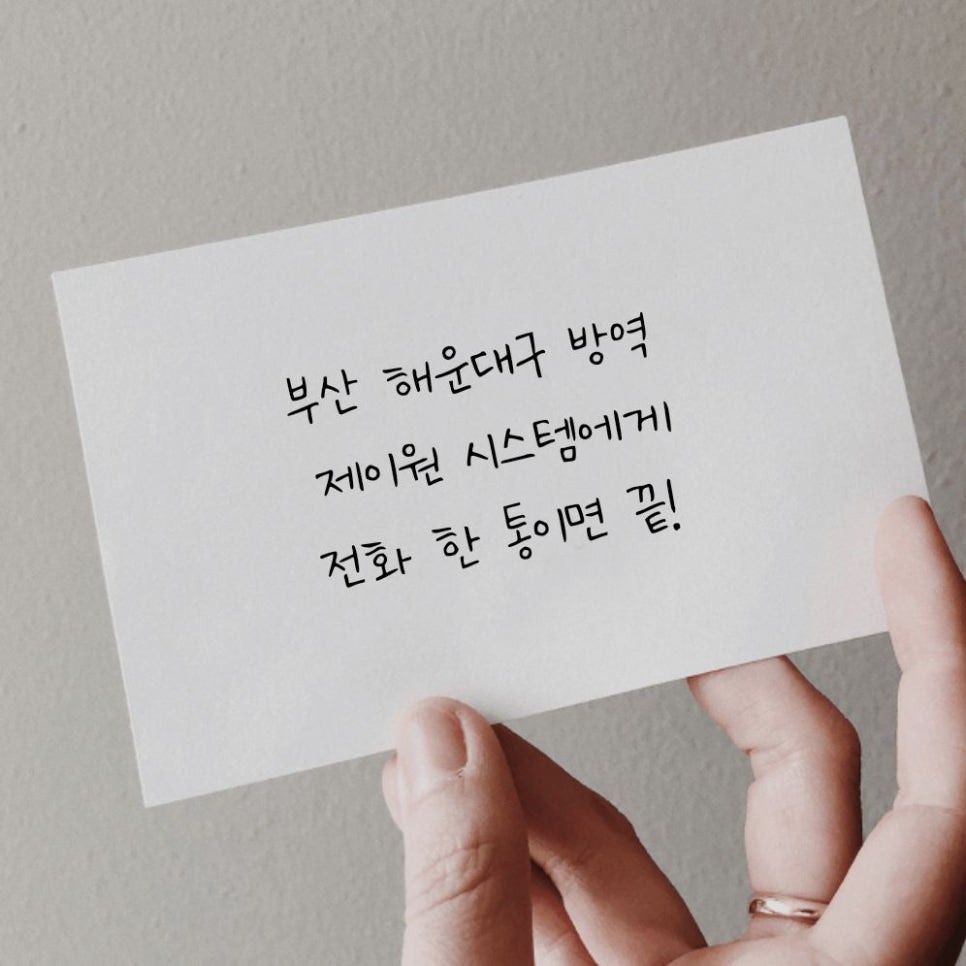 부산 해운대구 방역
제이원 시스템에게
전화 한 통이면 끝!